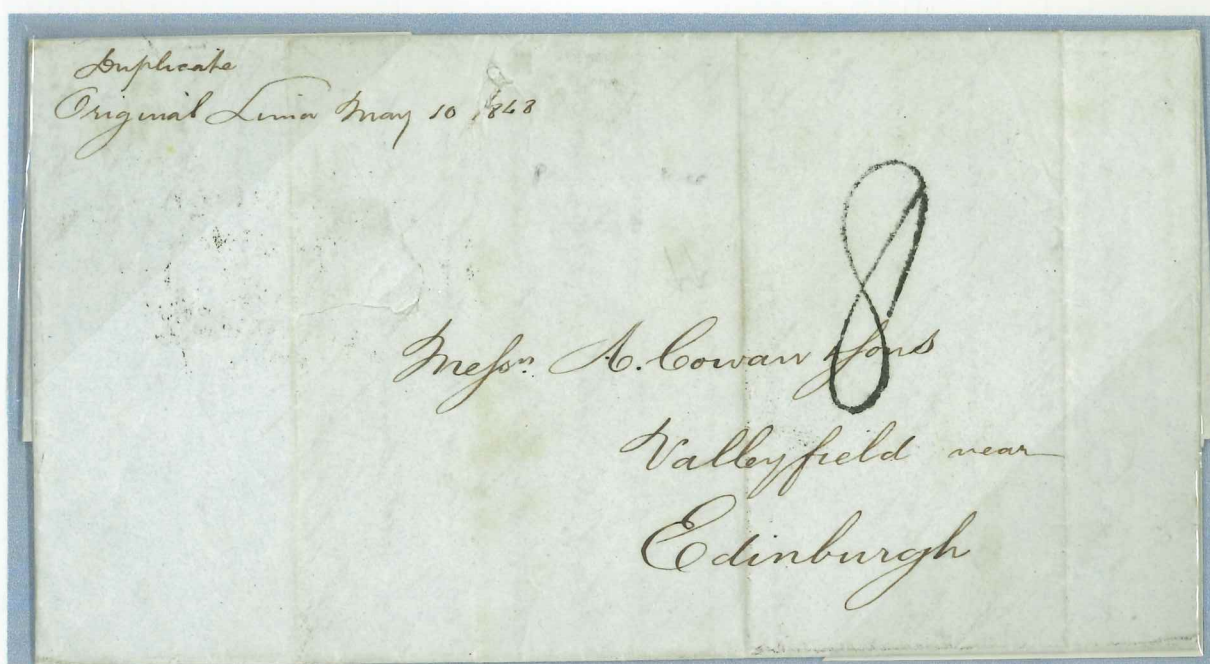 Duplicate
Original Lima May 10 1848
8
Messrs. A. Cowan & Sons
Valleyfield near
Edinburgh